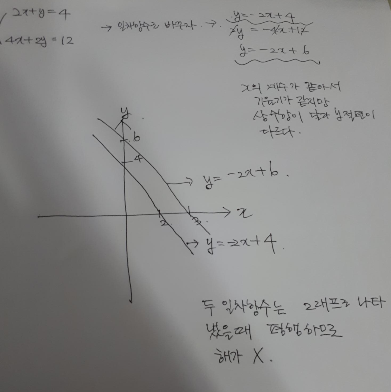 2x+y=4
4x+2y=12
→ 일차함수로 바꾸자 →
y=-2x+4
2y=-4x+12
y=-2x+6
x의 계수가 같아서
기울기가 같지만
상수항이 달라 y절편이
다르다.
y
6
4
→ y=-2x+6.
2
3
x
→ y=-2x+4.
두 일차함수는 그래프로 나타
냈을때 평행하므로
해가 X.